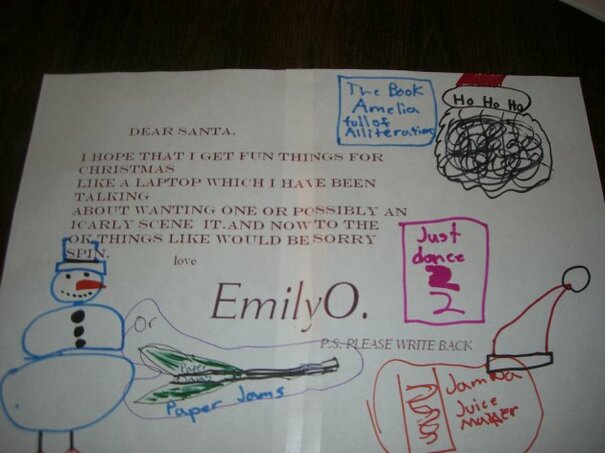 The Book
Amelia
full of
Alliteration
Ho Ho Ho
DEAR SANTA,
I HOPE THAT I GET FUN THINGS FOR
CHRISTMAS
LIKE A LAPTOP WHICH I HAVE BEEN
TALKING
ABOUT WANTING ONE OR POSSIBLY AN
ICARLY SCENE IT.AND NOW TO THE
OK THINGS LIKE WOULD BE SORRY
SPIN.
love
Just
dance
2
EmilyO.
Or
P.S. PLEASE WRITE BACK
Paper
Paper Jams
Jamba
Juice
maker